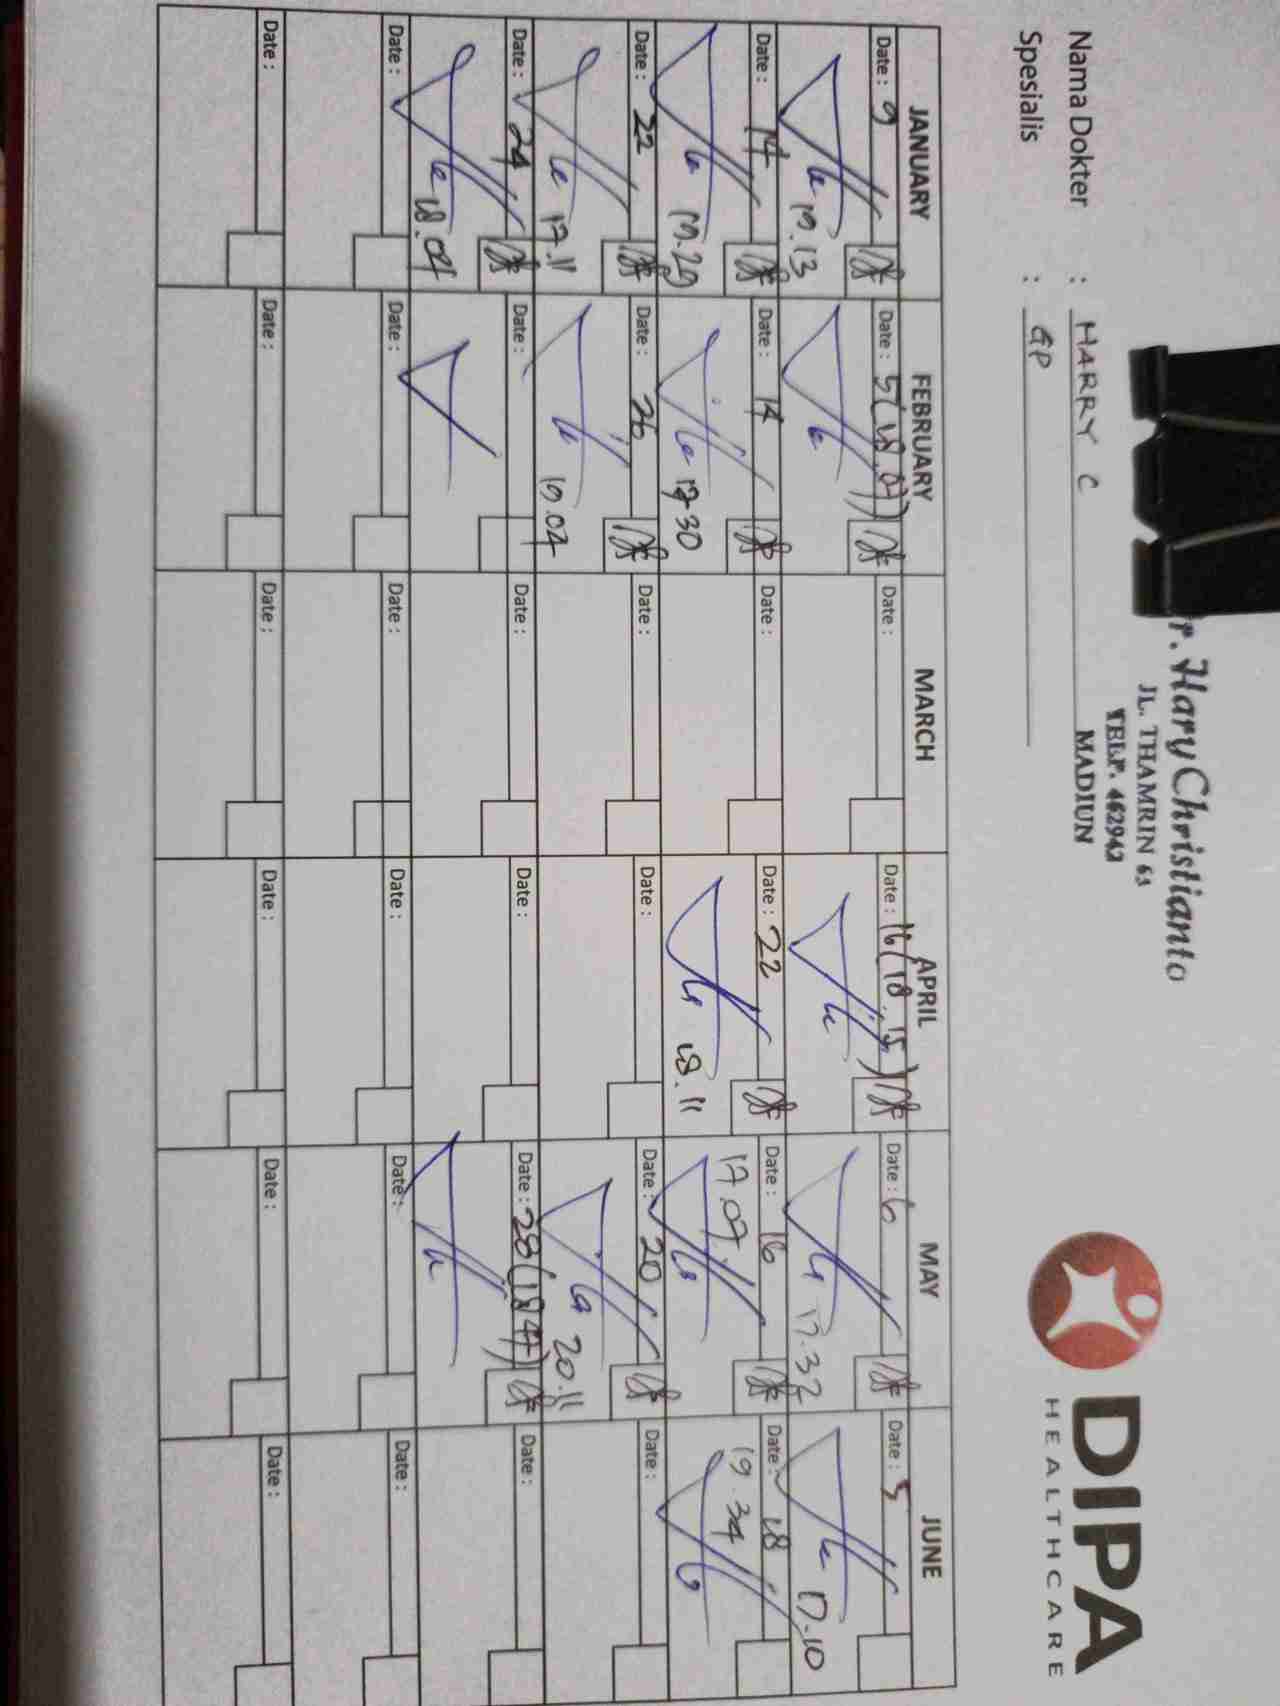 r. Hary Christianto
JL. THAMRIN 63
TELP. 462942
MADIUN
DIPA
HEALTHCARE
Nama Dokter : HARRY C
Spesialis : GP
JANUARY FEBRUARY MARCH APRIL MAY JUNE
Date : 9 Date : 5 (18.07) Date : Date : 16 (18.15) Date : 6 Date : 5
19.13 17.32 17.10
Date : 14 Date : 14 Date : Date : 22 Date : 16 Date : 18
19.20 17.30 18.11 17.09 19.34
Date : 22 Date : 26 Date : Date : Date : 20 Date :
17.11 19.04 20.11
Date : 24 Date : Date : Date : Date : 28 (18.47) Date :
18.04
Date : Date : Date : Date : Date : Date :
Date : Date : Date : Date : Date : Date :